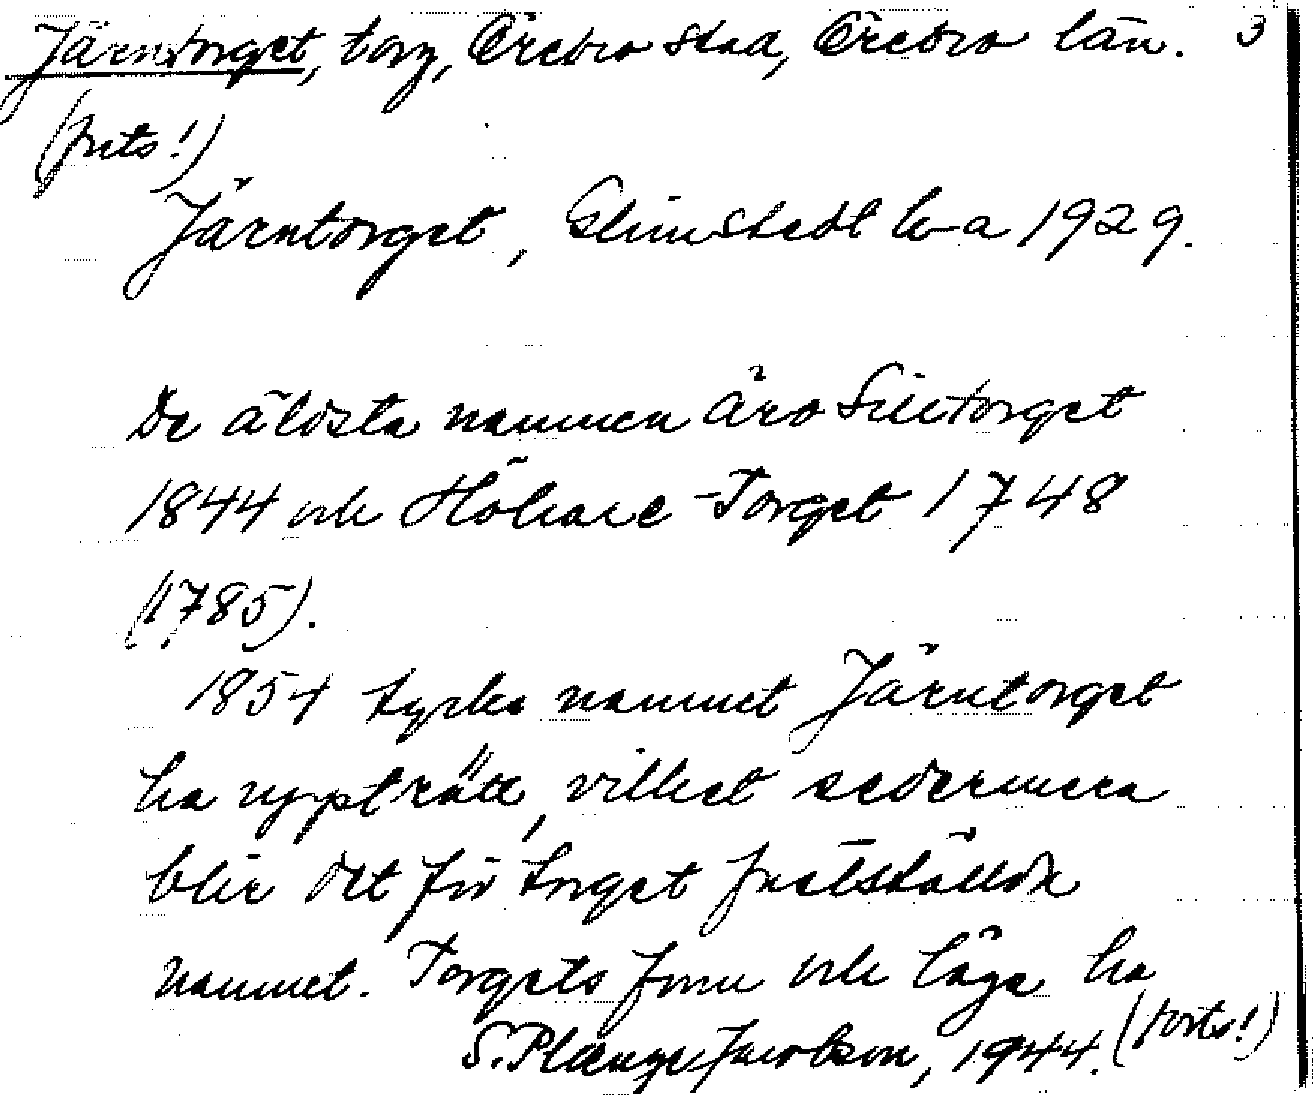 Järntorget, torg, Örebro stad, Örebro län. 3
(forts!)
Järntorget, Elmstedt 1929.
De äldsta namnen äro Silltorget
1844 och Hökare-Torget 1748
(1785).
1854 tycks namnet Järntorget
ha uppträtt, vilket sedermera
blir det för torget fastställda
namnet. Torgets form och läge ha
S. Plænge Jacobson, 1944. (forts!)